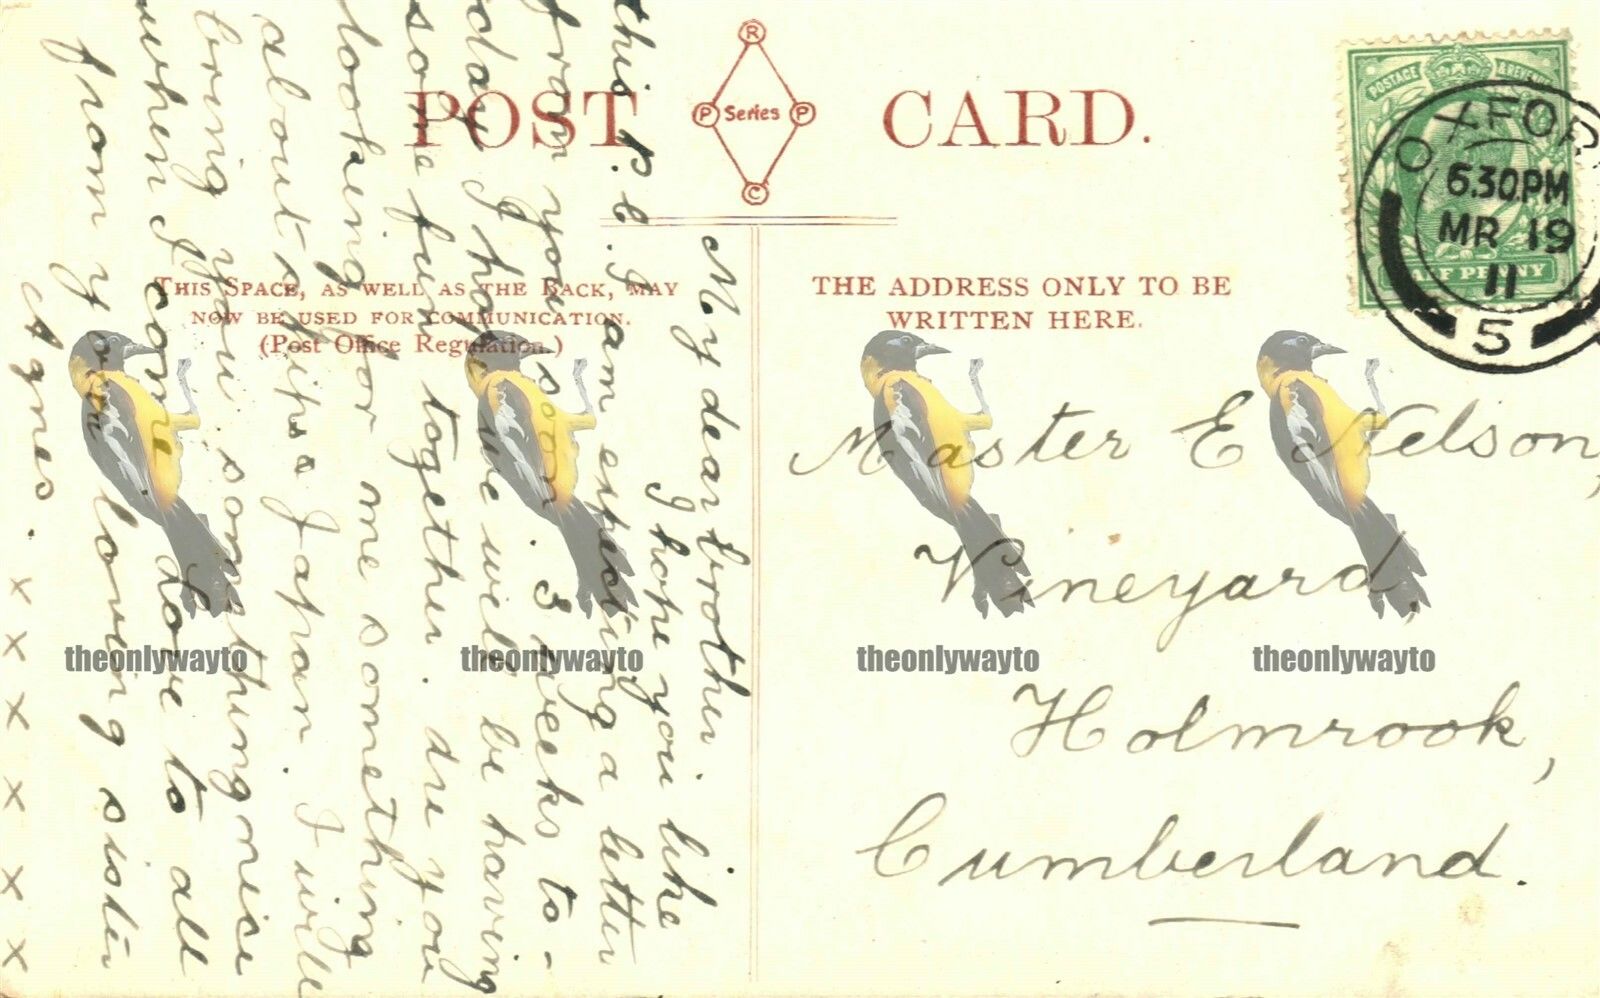 POST CARD.
R
P Series P
C
THIS SPACE, AS WELL AS THE BACK, MAY
NOW BE USED FOR COMMUNICATION.
(Post Office Regulation.)
THE ADDRESS ONLY TO BE
WRITTEN HERE.
POSTAGE & REVENUE
HALF PENNY
OXFOR
6.30PM
MR 19
11
5
My dear brother
I hope you like
this p.c. I am expecting a letter
from you soon. 3 weeks to-
day I hope we will be having
some fun together. are you
looking for me something
about Japan. I will
bring you something nice
when I come Love to all
from your loving sister
Agnes. x x x x x x
Master E Nelson,
Vineyard,
Holmrook,
Cumberland.
theonlywayto theonlywayto theonlywayto theonlywayto